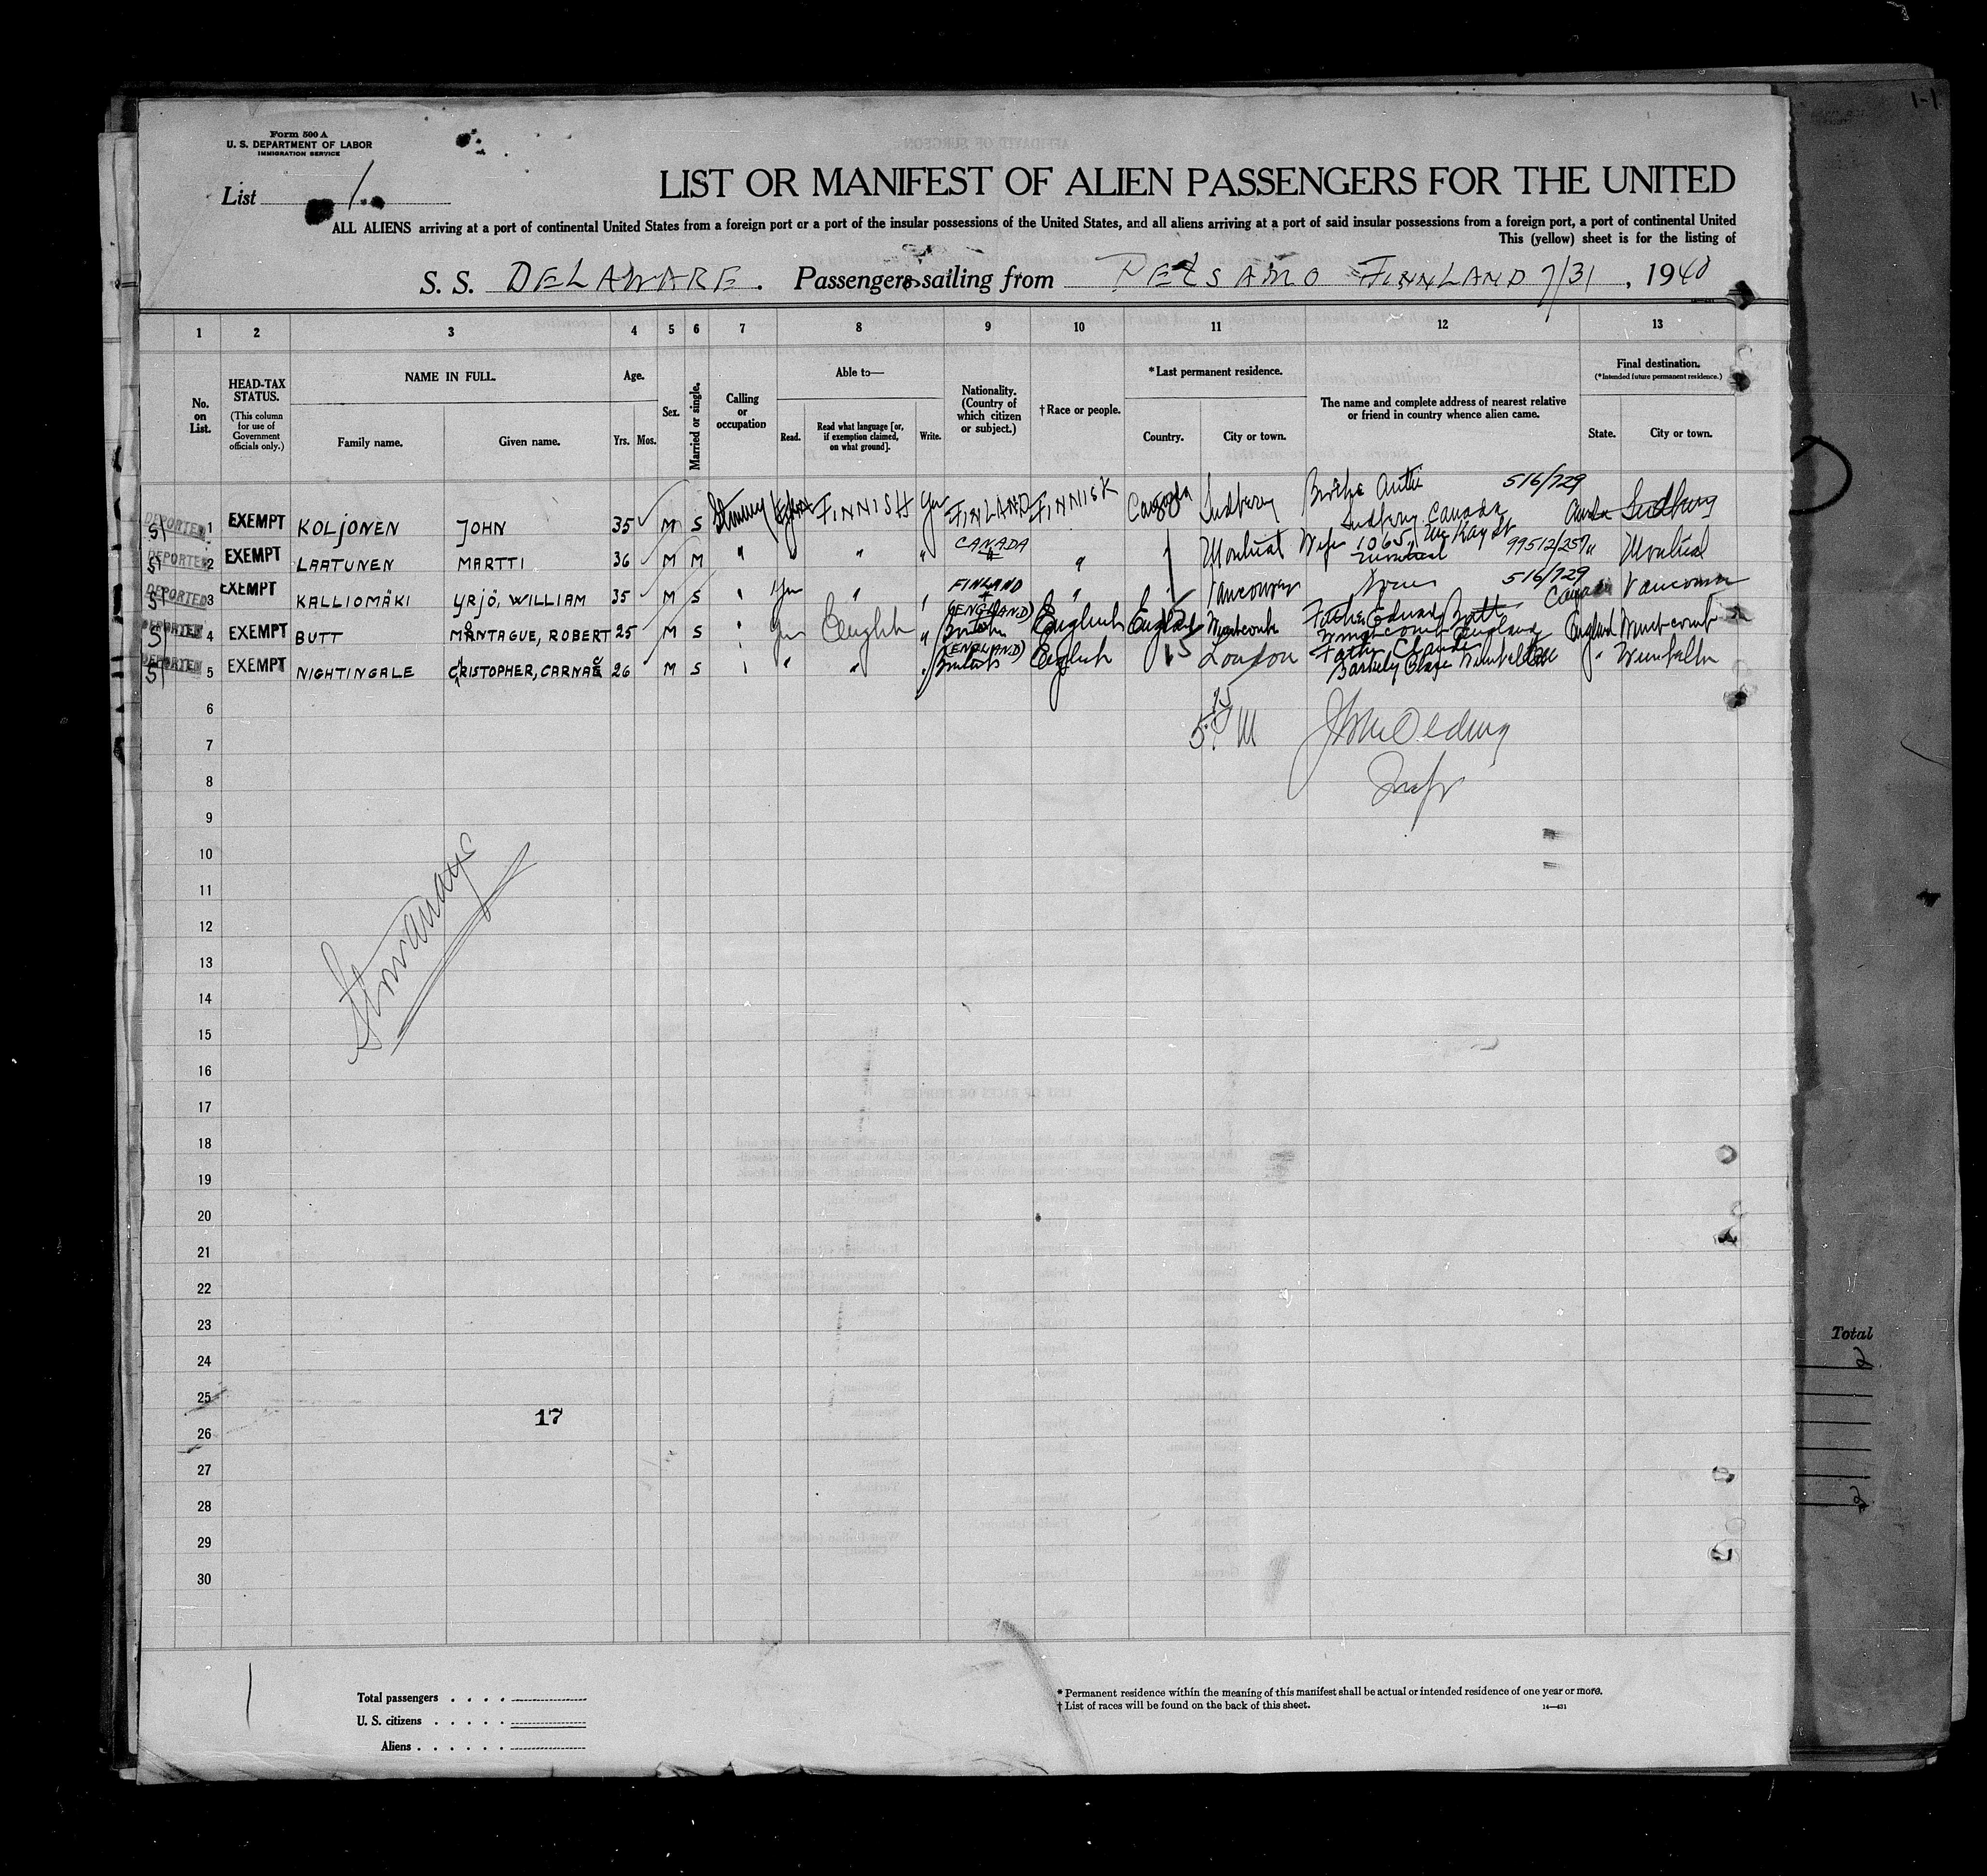 1-1
Form 500 A
U. S. DEPARTMENT OF LABOR
IMMIGRATION SERVICE
List 1
LIST OR MANIFEST OF ALIEN PASSENGERS FOR THE UNITED
ALL ALIENS arriving at a port of continental United States from a foreign port or a port of the insular possessions of the United States, and all aliens arriving at a port of said insular possessions from a foreign port, a port of continental United
This (yellow) sheet is for the listing of
S. S. DELAWARE. Passengers sailing from PETSAMO FINNLAND 7/31, 1940
1 2 3 4 5 6 7 8 9 10 11 12 13
No. on List.
HEAD-TAX STATUS.
(This column for use of Government officials only.)
NAME IN FULL.
Family name. Given name.
Age.
Yrs. Mos.
Sex.
Married or single.
Calling or occupation
Able to—
Read. Read what language [or, if exemption claimed, on what ground]. Write.
Nationality. (Country of which citizen or subject.)
†Race or people.
*Last permanent residence.
Country. City or town.
The name and complete address of nearest relative or friend in country whence alien came.
Final destination.
(*Intended future permanent residence.)
State. City or town.
DEPORTED SI 1 EXEMPT KOLJONEN JOHN 35 M S FINNISH FINLAND FINNISK Canada Sudbury Sudbury Canada 516/729 Canada Sudbury
DEPORTED SI 2 EXEMPT LAATUNEN MARTTI 36 M M " " " " CANADA " Montreal Wife 1065 McKay St Montreal 99512/257 " Montreal
DEPORTED SI 3 EXEMPT KALLIOMÄKI YRJÖ, WILLIAM 35 M S " Yes " " FINLAND " Vancouver None 516/729 Canada Vancouver
DEPORTED SI 4 EXEMPT BUTT MONTAGUE, ROBERT 25 M S " Yes English " (ENGLAND) British English England Father Edward Butt England England
DEPORTED SI 5 EXEMPT NIGHTINGALE CHRISTOPHER, CARNAC 26 M S " " " " (ENGLAND) British English London Father Claude "
6
7
8
9
10
11
12
13
14
15
16
17
18
19
20
21
22
23
24
25
26
27
28
29
30
Stowaways
17
Total
Total passengers
U. S. citizens
Aliens
* Permanent residence within the meaning of this manifest shall be actual or intended residence of one year or more.
† List of races will be found on the back of this sheet.
14—431